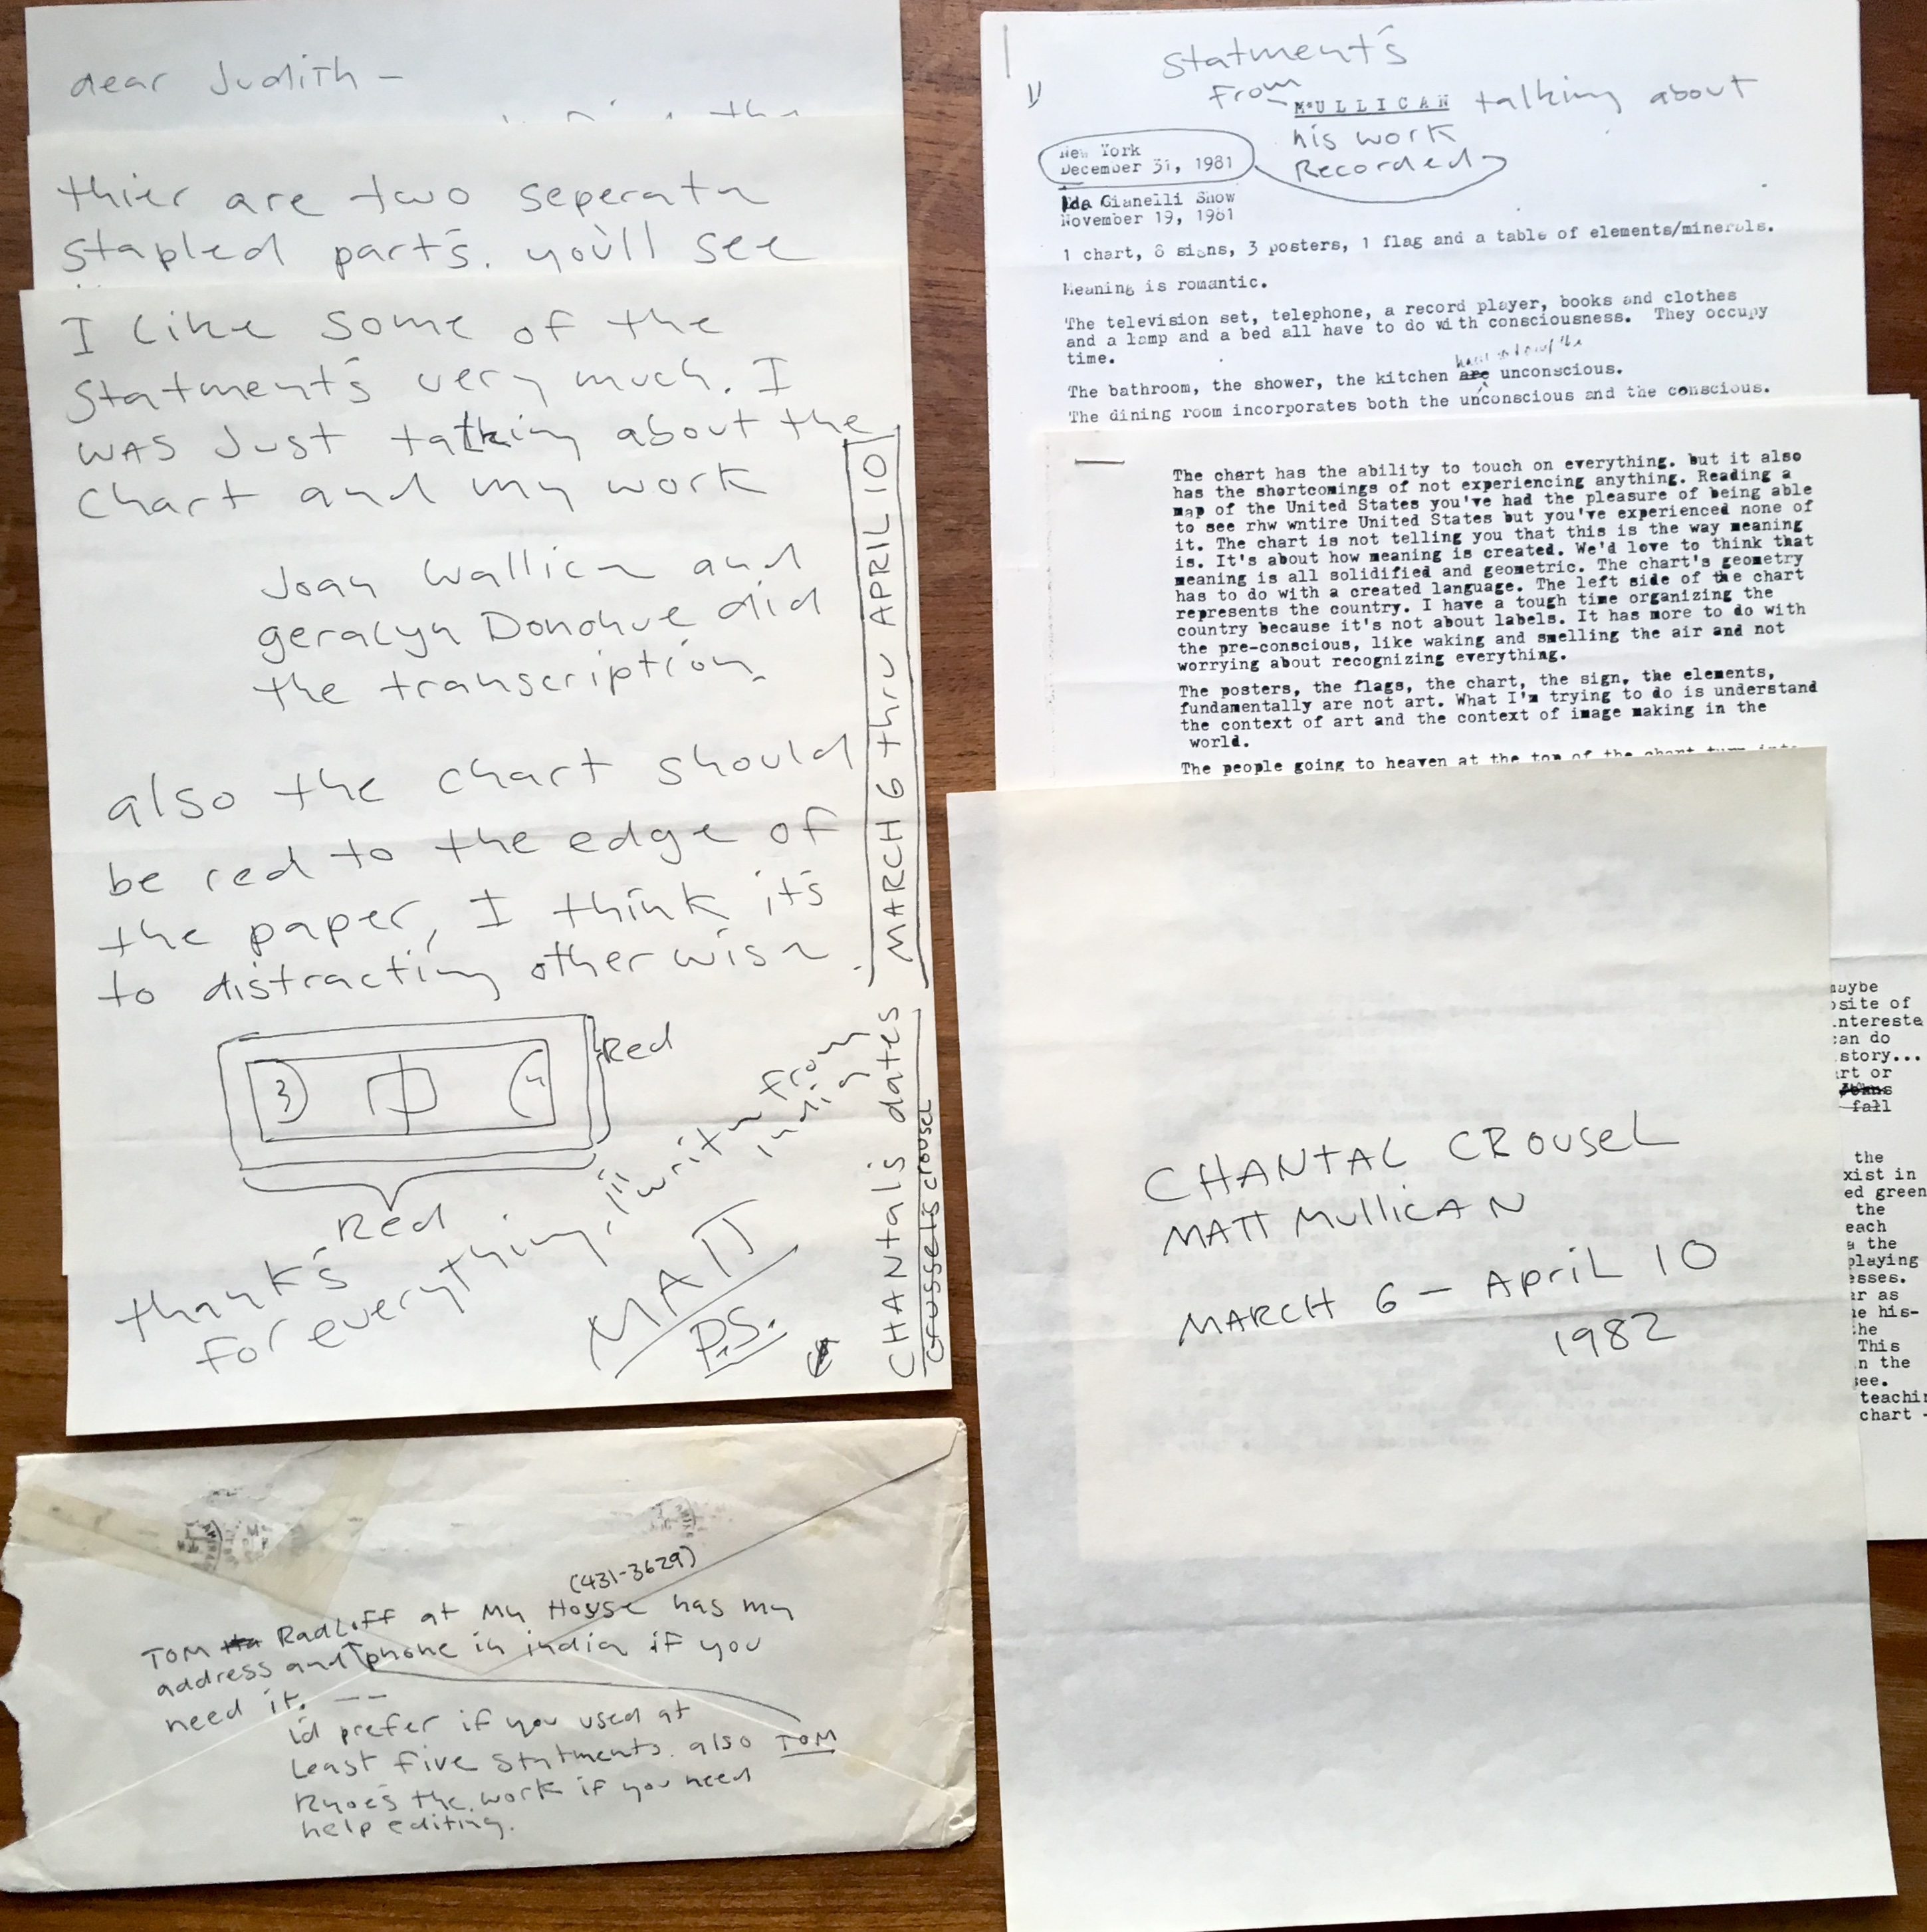 dear Judith —
thier are two seperate
stapled parts. you'll see
I like some of the
statments very much. I
was Just talking about the
chart and my work
Joan Wallice and
geralyn Donohue did
the transcription.
also the chart should
be red to the edge of
the paper, I think it's
to distracting otherwise.
Red
Red
thank's
for everything, i'll write from
india
MATT
P.S.
CHANTal's dates MARCH 6 thru APRIL 10
crousel
(431-3629)
TOM RadLiff at My House has my
address and phone in india if you
need it. ——
i'd prefer if you used at
least five statments. also TOM
knoes the work if you need
help editing.
Statment's
From MULLICAN talking about
his work
Recorded
New York
December 31, 1981
Ida Gianelli Show
November 19, 1981
1 chart, 8 signs, 3 posters, 1 flag and a table of elements/minerals.
Meaning is romantic.
The television set, telephone, a record player, books and clothes
and a lamp and a bed all have to do with consciousness. They occupy
time.
The bathroom, the shower, the kitchen are unconscious.
The dining room incorporates both the unconscious and the conscious.
The chart has the ability to touch on everything. but it also
has the shortcomings of not experiencing anything. Reading a
map of the United States you've had the pleasure of being able
to see rhw wntire United States but you've experienced none of
it. The chart is not telling you that this is the way meaning
is. It's about how meaning is created. We'd love to think that
meaning is all solidified and geometric. The chart's geometry
has to do with a created language. The left side of the chart
represents the country. I have a tough time organizing the
country because it's not about labels. It has more to do with
the pre-conscious, like waking and smelling the air and not
worrying about recognizing everything.
The posters, the flags, the chart, the sign, the elements,
fundamentally are not art. What I'm trying to do is understand
the context of art and the context of image making in the
world.
The people going to heaven at the top of the chart turn into
maybe
osite of
intereste
can do
story...
art or
fall
the
xist in
ed green
the
each
the
playing
esses.
er as
he his-
the
This
n the
see.
teachin
chart -
CHANTAL CROUSEL
MATT MullicAN
MARCH 6 — April 10
1982